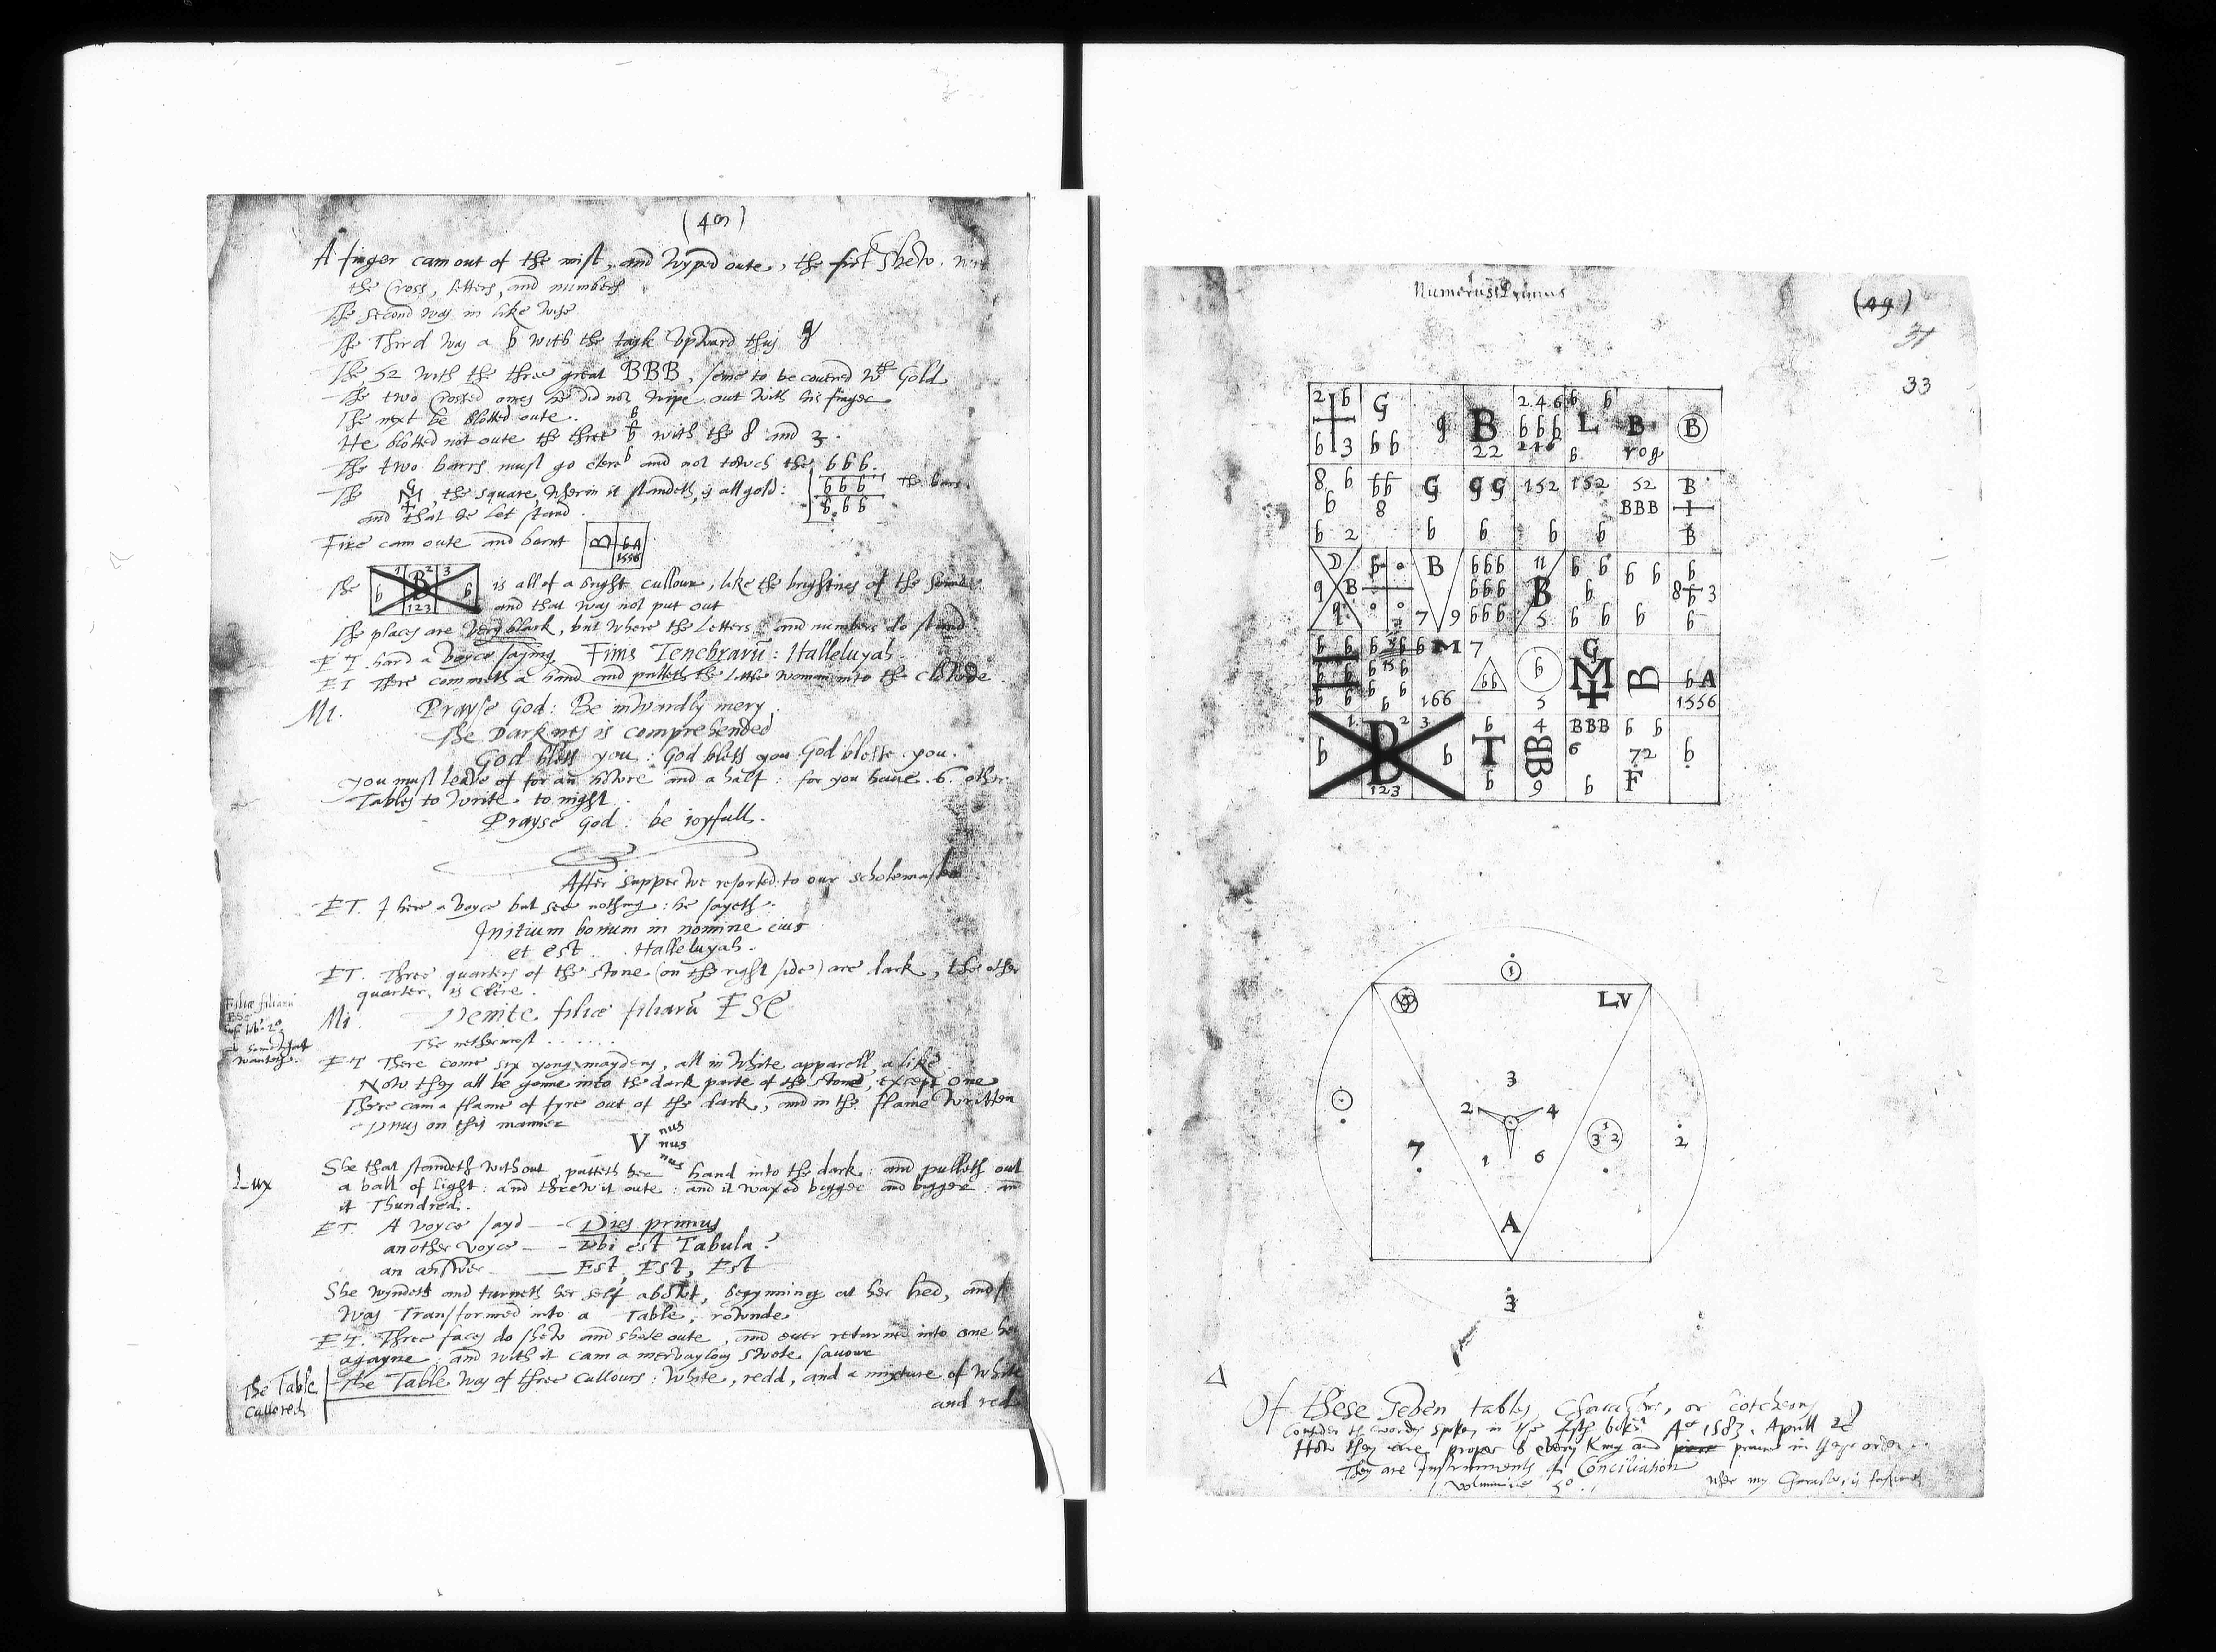 A finger cam out of the mist, and wyped oute, the first shew, with
the Cross, letters, and numbers
The second was in like wise
The Third was a b with the tayle upward thus g
The 52 with the three great BBB, seme to be covered wth Gold
The two Crossed ones he did not wipe out with his finger
The next he blotted oute.
He blotted not oute the three b b b with the 8 and 3.
The two barrs must go clere and not towch the bbb.
bbb
bbb
the bars
The G M +, the square, wherin it standeth, is all gold:
and that he let stand.
Fire cam oute and bornt B bA 1556
The 1 2 3 b B b 123 is all of a bright cullour, like the brightnes of the Sonne
and that was not put out
The places are very black, but where the letters and numbers do stand
E T. hard a voyce saying Finis Tenebrarũ: Halleluyah.
E T There commeth a hand and pulleth the little woman into the clowde.
Mi. Prayse God: Be inwardly mery.
The Darknes is comprehended
God bless you: God bless you: God blesse you.
you must leave of for an howre and a half: for you have 6 other
Tables to write to night.
Prayse God: be ioyfull.
After supper we resorted to our scholemaster
ET. I here a voyce but see nothing: he sayeth.
Initium bonum in nomine eius
et est. Halleluyah.
ET. Three quarters of the stone (on the right side) are dark, the other
quarter, is clere.
Filiæ filiarũ
Mi. Venite filiæ filiarũ ESE
The nethermost ......
somewhat
wanteth.
ET There come six yong maydens, all in white apparell, alike
Now they all be gonne into the dark parte of the stone, except one
There cam a flame of fyre out of the dark, and in the flame written
Vnus on this manner
V nus
nus
nus
Lux
She that standeth without, putteth her hand into the dark: and pulleth out
a ball of light: and threw it oute: and it waxed bigger and bigger: and
it Thundred.
ET. A voyce sayd — Dies primus
another voyce — Vbi est Tabula?
an answer — Est, Est, Est
She wyndeth and turneth her self abowt, begynning at her hed, and so
was Transformed into a Table, rownde
ET. Three faces do shew and shote oute, and ever returne into one hed
agayne: and with it cam a mervaylous swete savour
The Table
Cullored
The Table was of three cullours: white, redd, and a mixture of white
and red
Numerus Primus
(49)
33
2 b G 246 b b
b 3 bb g B 22 bbb 246 L b B rog B
8 b bb G gg 152 152 52 B
b 8 BBB I
b 2 b b b b B
D b B bbb 11 b b b b b
9 B bbb B b 8 b 3
9 7 9 bbb 5 b b b b b
b b b b b M 7 G
b b 15 b bb b M B bA
b b b b 166 5 1556
1 2 3 b 4 BBB b b
b B b T BB 6 72 b
123 b 9 b F
1
LV
3
2 4
1
3 2
2
7
1 6
A
3
Δ
Of these Seven tables, Characters, or scotcheons
Consider the wordes spoken in the fifth boke Ao 1583. Aprill 28
How they are proper to every King and prince in theyr order
They are Instruments of Conciliation